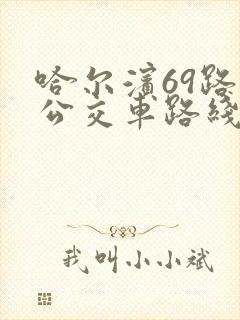 哈尔滨69路
公交车路线
我叫小小斌